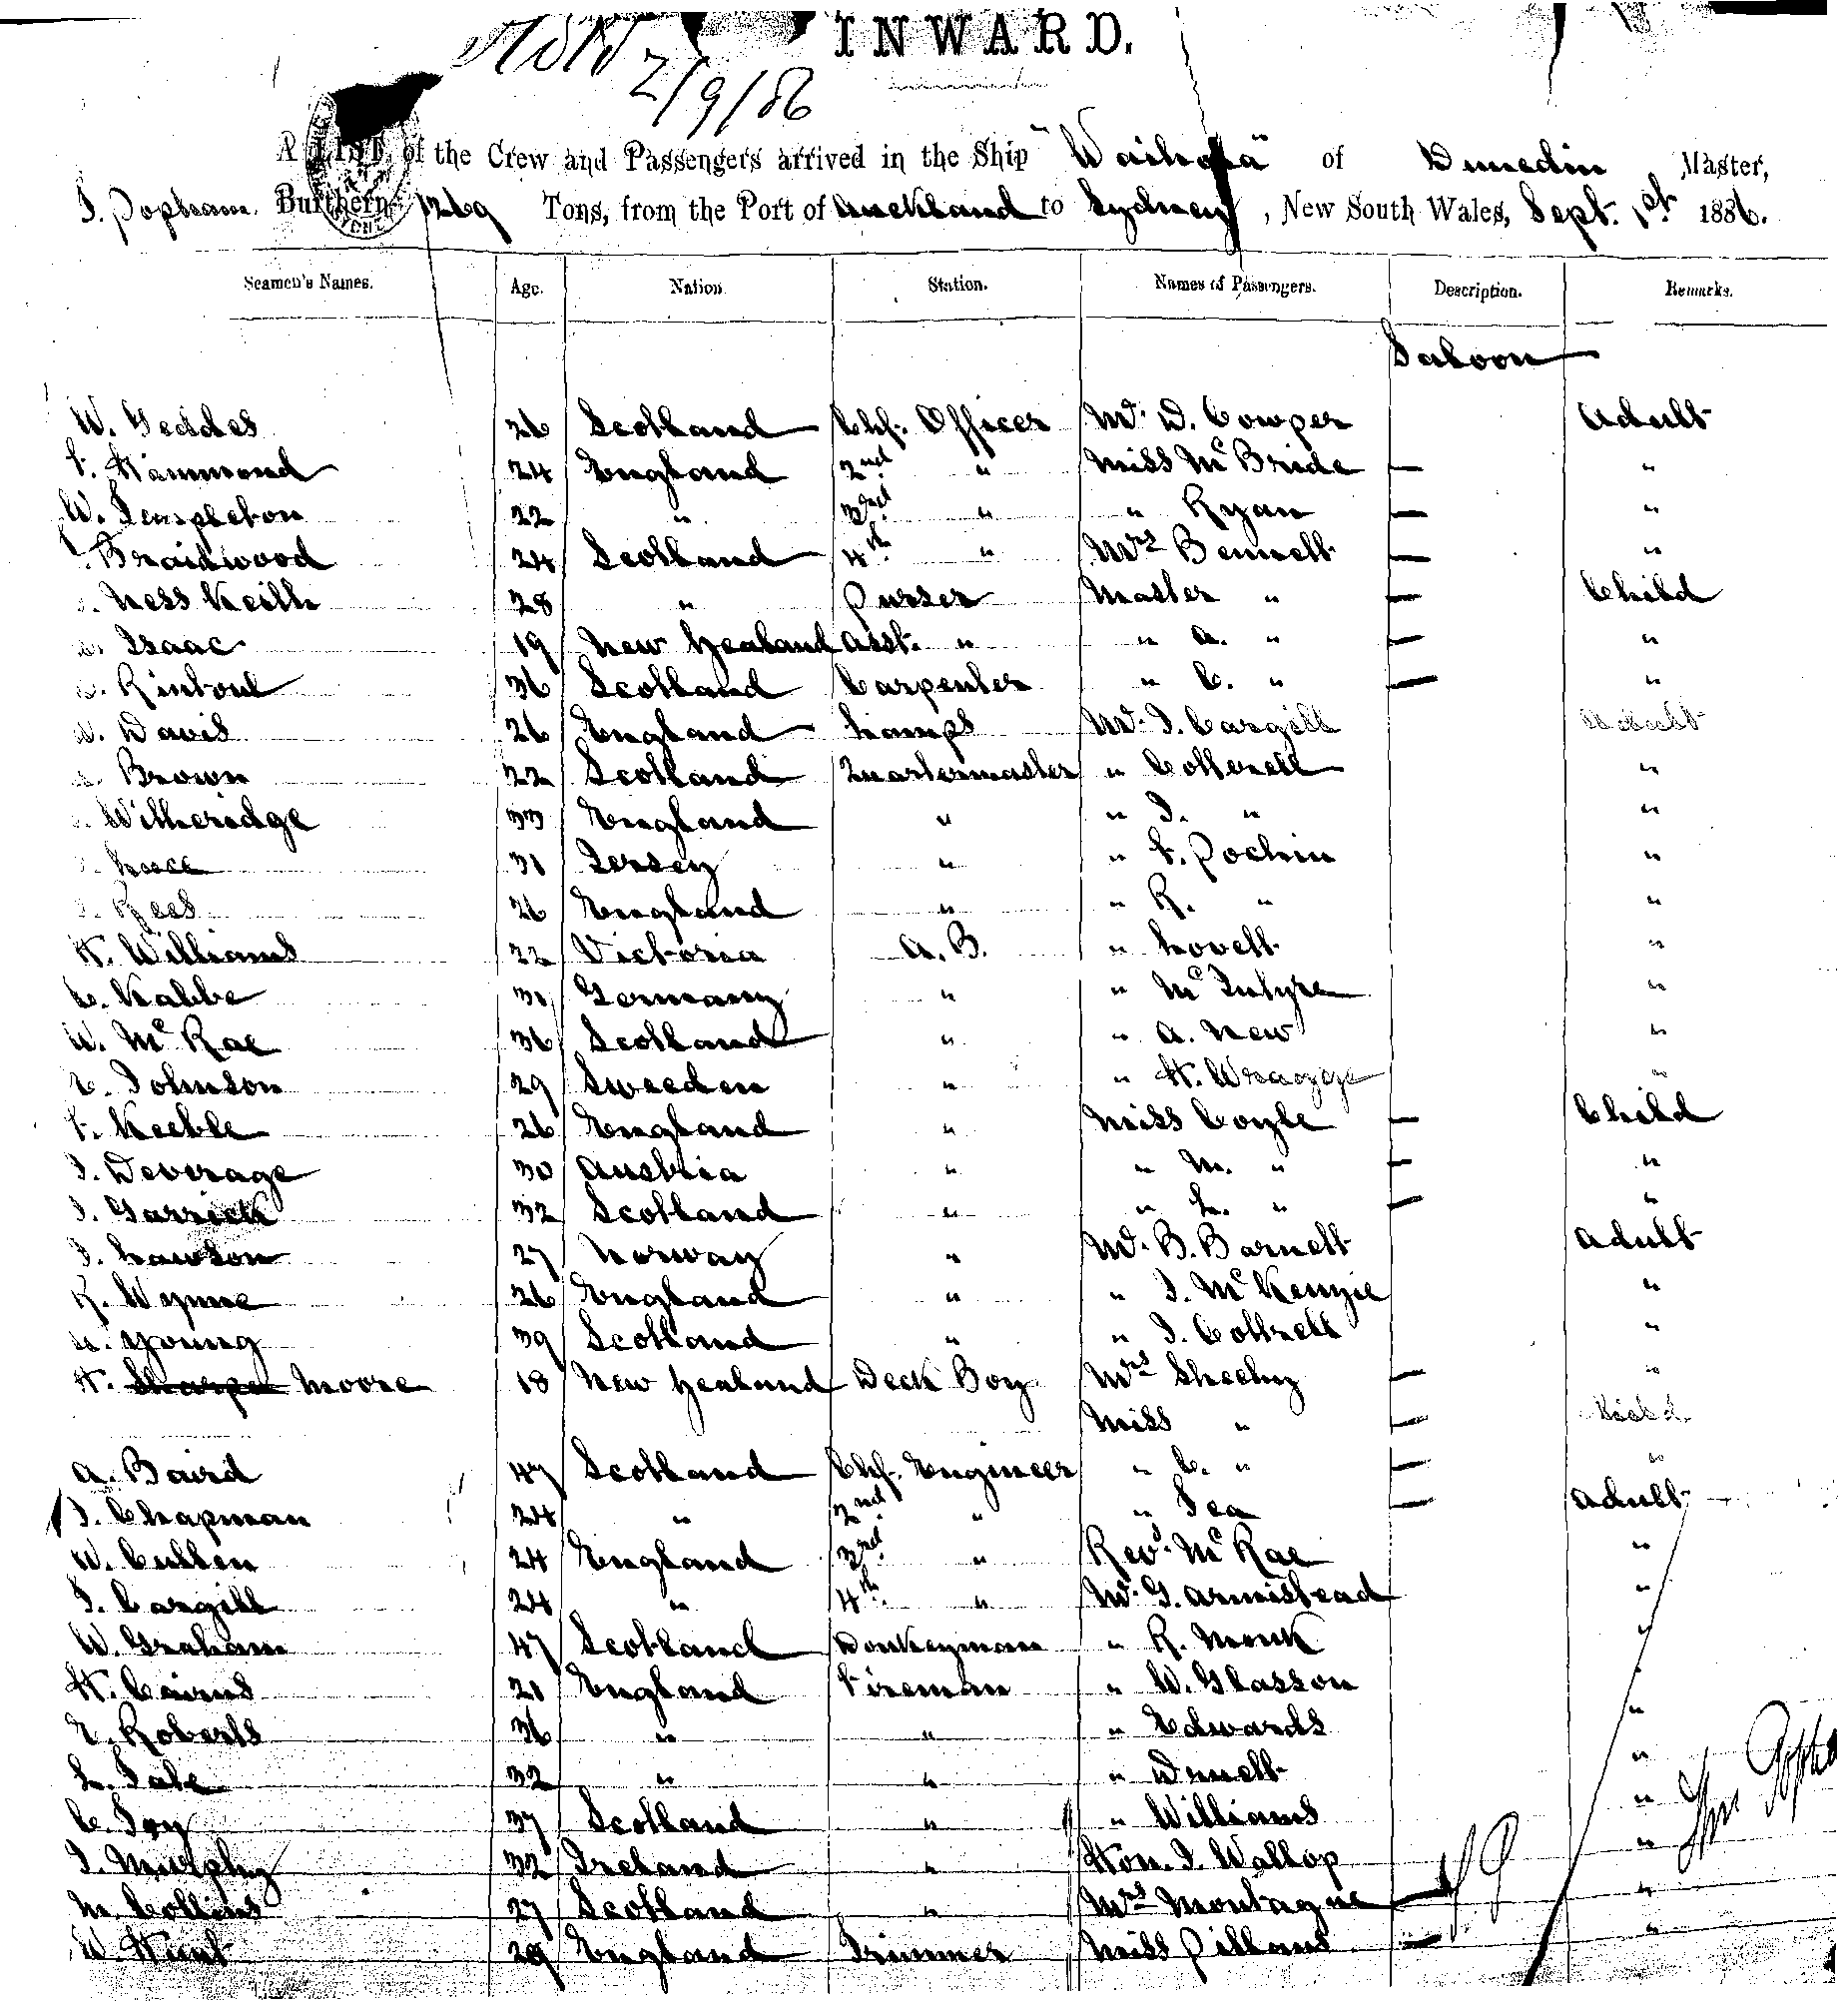 INWARD.
2/9/86
A LIST of the Crew and Passengers arrived in the Ship "Waihora" of Dunedin Master,
J. Popham. Burthern 1269 Tons, from the Port of Auckland to Sydney, New South Wales, Sept. 1st 1886.
Seamen's Names. Age. Nation. Station. Names of Passengers. Description. Remarks.
Saloon
W. Geddes 26 Scotland Chf. Officer Mr. D. Cowper Adult
F. Hammond 24 England 2nd " Miss McBride — "
W. Templeton 22 " 3rd " " Ryan — "
Braidwood 24 Scotland 4th " Mrs Bennett — "
Ness Keith 28 " Purser Master " — Child
Isaac 19 New Zealand Asst. " " A. " — "
Rintoul 36 Scotland Carpenter " C. " — "
Davis 26 England Lamps Mr. J. Cargill Adult
Brown 22 Scotland Quartermaster " Cotterell "
Witheridge 33 England " " J. " "
31 Jersey " " F. Pochin "
Rees 26 England " " R. " "
H. Williams 22 Victoria A.B. " Lovett "
C. Kabbe 31 Germany " " McIntyre "
W. McRae 36 Scotland " " A. New "
E. Johnson 29 Sweeden " " H. Wragge "
F. Keeble 26 England " Miss Coyle — Child
J. Deverage 30 Austria " " M. " — "
J. Garrick 32 Scotland " " L. " — "
J. Lawson 27 Norway " Mr. B. Barnett Adult
R. Wynne 26 England " " J. McKenzie "
Young 39 Scotland " " J. Cottrell "
H. Sharpe Moore 18 New Zealand Deck Boy Mrs Sheehy — "
Miss " — Child
A. Baird 47 Scotland Chf. Engineer " C. " — "
J. Chapman 24 " 2nd " " Tea — Adult
W. Cullen 24 England 3rd " Revd. McRae "
J. Cargill 24 " 4th " Mr. G. Armistead "
W. Graham 47 Scotland Donkeyman " R. Monk "
H. Cairns 21 England Fireman " W. Glasson "
E. Roberts 36 " " " Edwards "
L. Tate 32 " " " "
C. Joy 37 Scotland " " Williams "
J. Murphy 32 Ireland " Hon. J. Wallop "
M. Collins 27 Scotland " Mrs Montague — "
W. Hunt 29 England Trimmer Miss Pillans — "